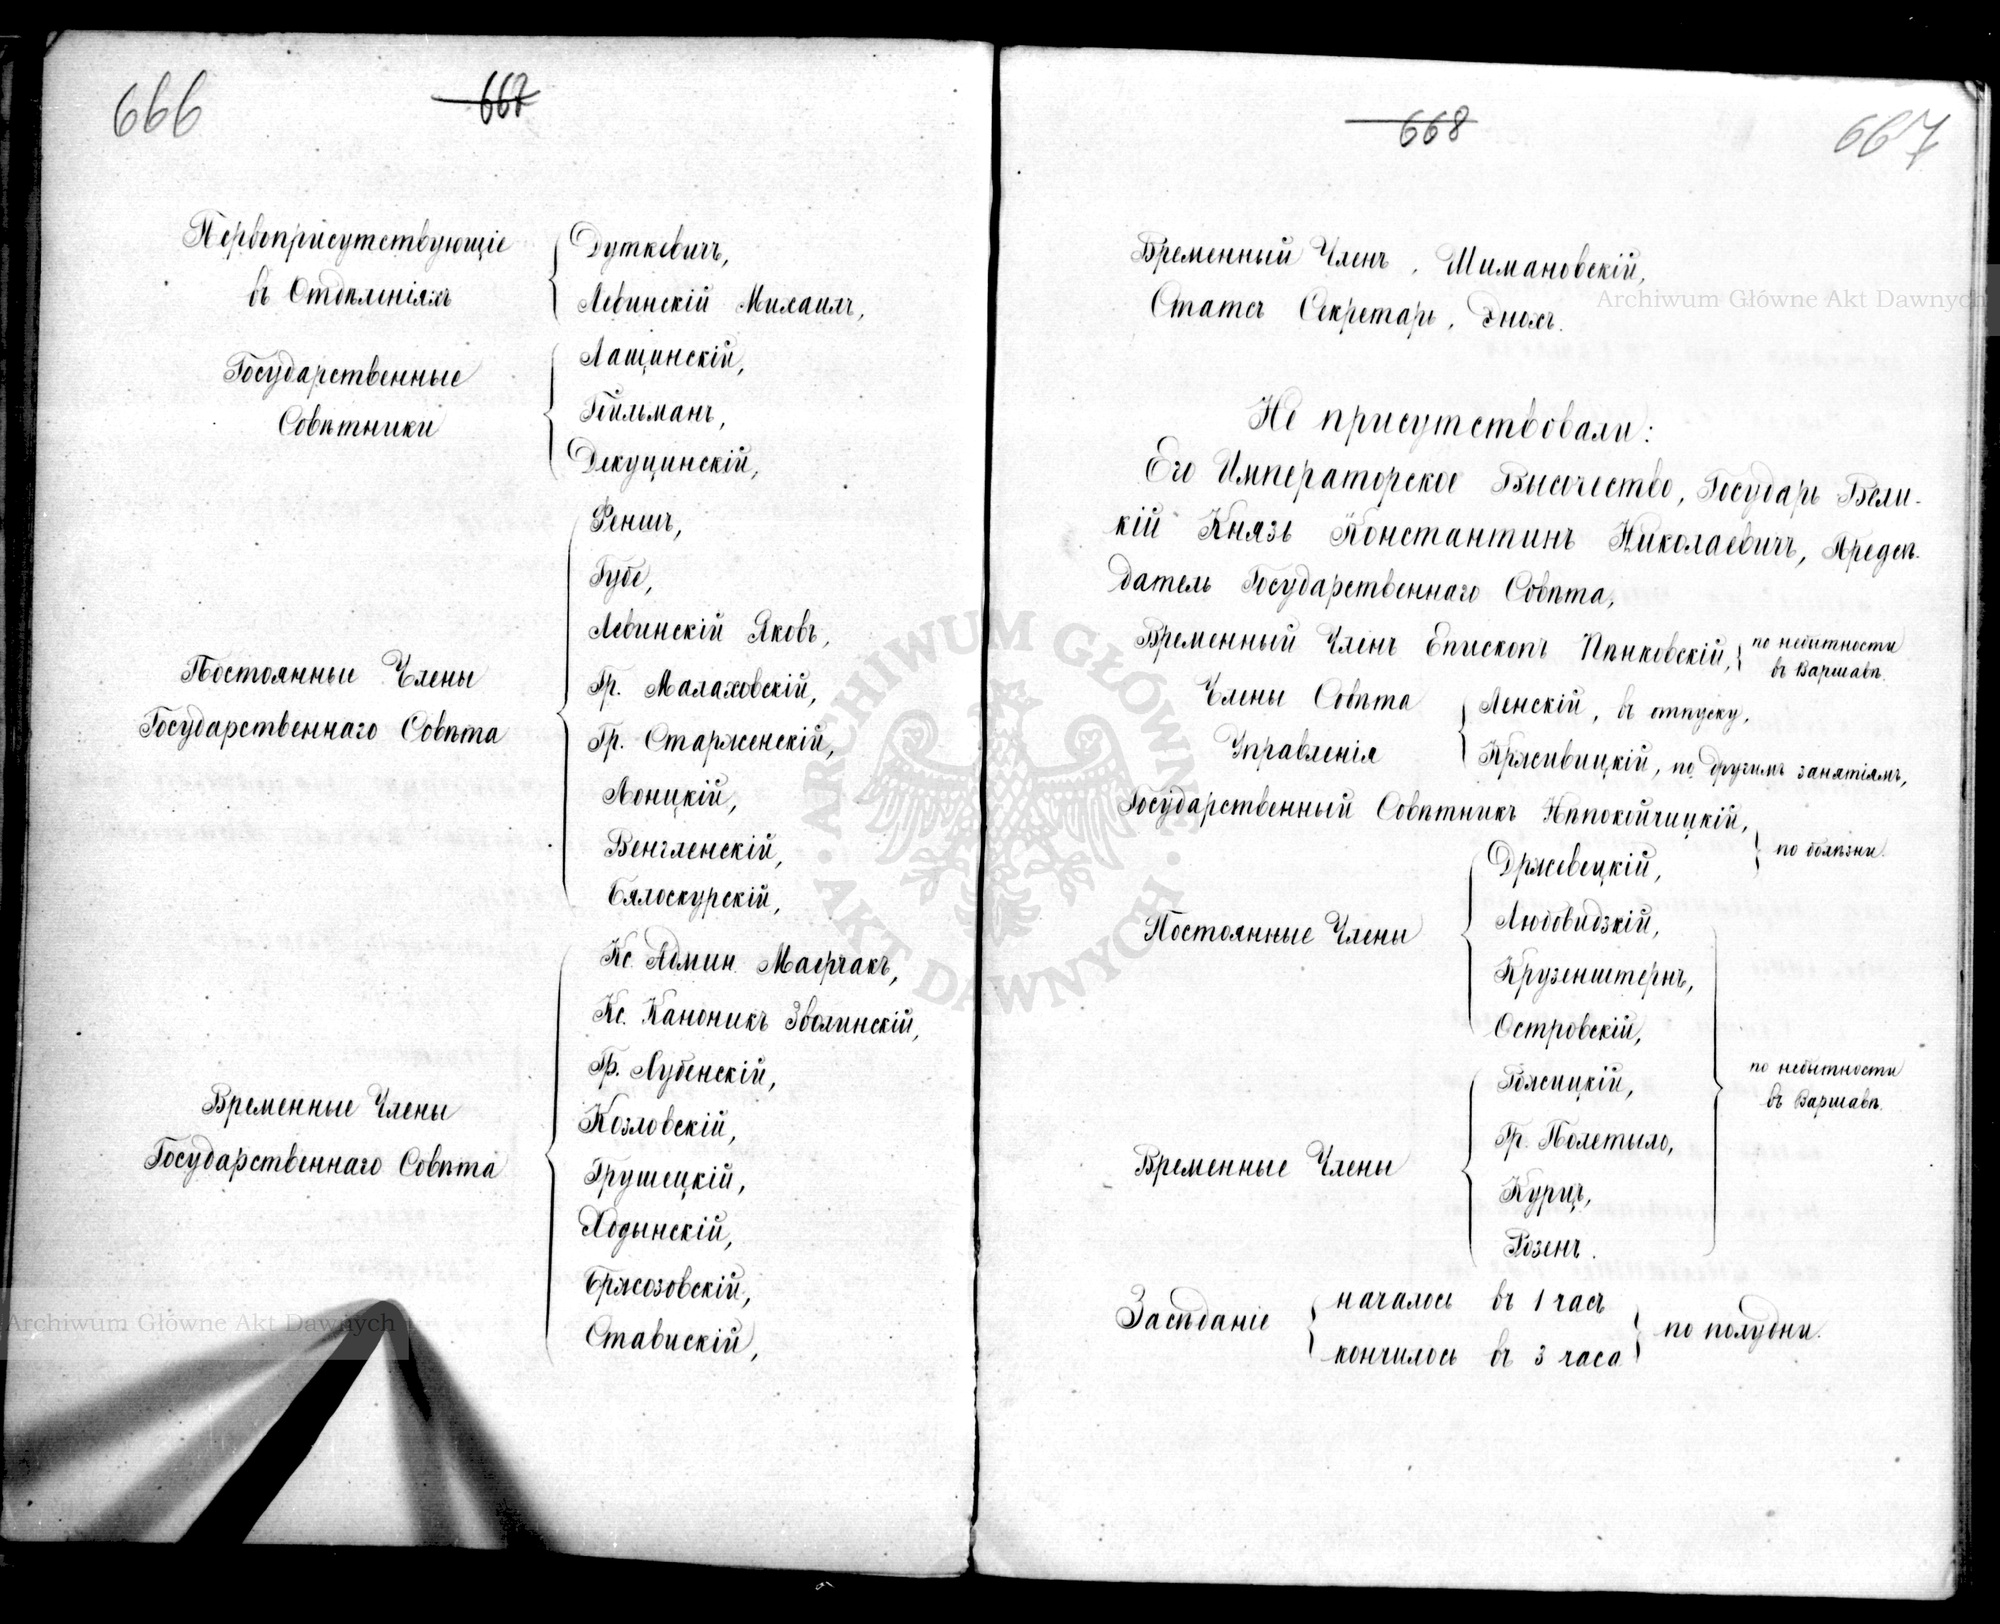 666
667
Первоприсутствующіе
въ Отдѣленіяхъ
Дуткевичъ,
Левинскій Михаилъ,
Государственные
Совѣтники
Лащинскій,
Гейльманъ,
Декуцинскій,
Постоянные Члены
Государственнаго Совѣта
Реншъ,
Губе,
Левинскій Яковъ,
Гр. Малаховскій,
Гр. Старженскій,
Лоницкій,
Венгленскій,
Бялоскурскій,
Временные Члены
Государственнаго Совѣта
Кс. Админ. Маерчакъ,
Кс. Каноникъ Зволинскій,
Гр. Лубенскій,
Козловскій,
Грушецкій,
Ходынскій,
Бржозовскій,
Стависскій,
668
667
Временный Членъ, Шимановскій,
Статсъ Секретарь, Энохъ.
Не присутствовали:
Его Императорское Высочество, Государь Вели-
кій Князь Константинъ Николаевичъ, Предсѣ-
датель Государственнаго Совѣта,
Временный Членъ Епископъ Пѣнковскій, по небытности
въ Варшавѣ.
Члены Совѣта
Управленія
Ленскій, въ отпуску,
Крживицкій, по другимъ занятіямъ,
Государственный Совѣтникъ Непокойчицкій,
по болѣзни.
Постоянные Члены
Држевецкій,
Любовидзкій,
Крузенштернъ,
Островскій,
Временные Члены
Голсицкій,
Гр. Полетыло,
Курцъ,
Розенъ.
по небытности
въ Варшавѣ.
Засѣданіе
началось въ 1 часъ
кончилось въ 3 часа
по полудни.
Archiwum Główne Akt Dawnych
Archiwum Główne Akt Dawnych
ARCHIWUM GŁÓWNE · AKT DAWNYCH ·